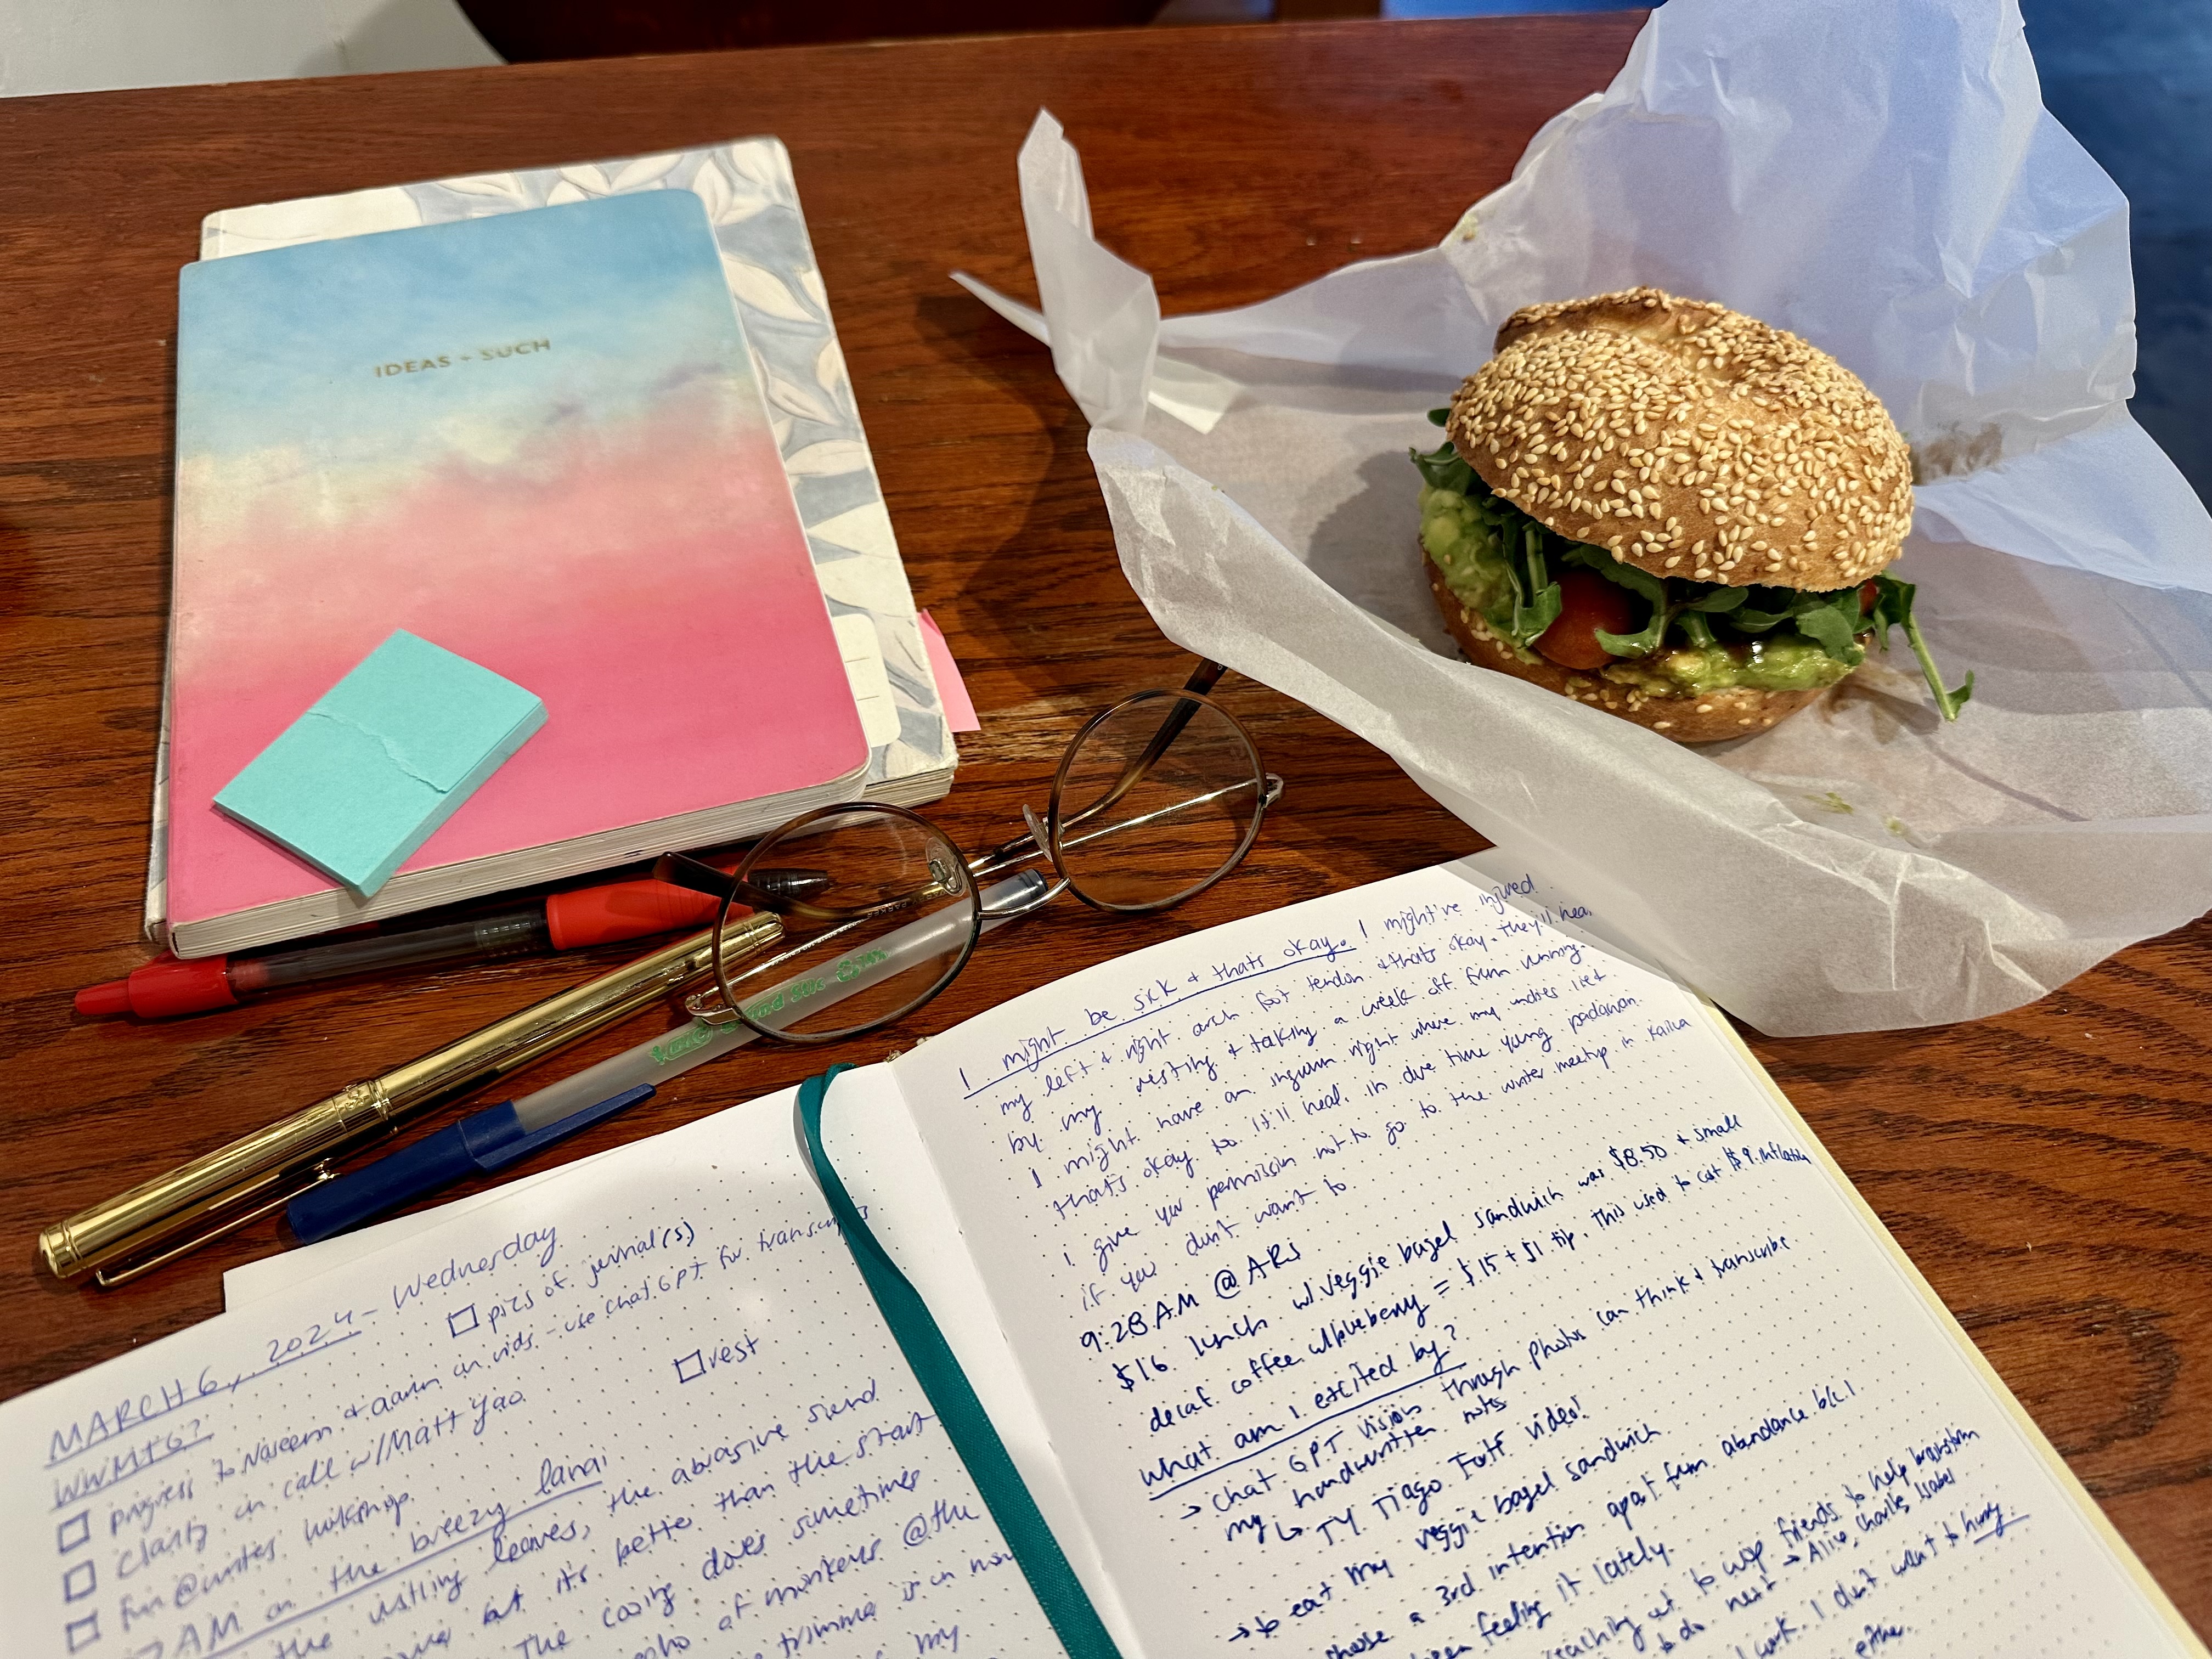 IDEAS + SUCH
MARCH 6, 2024 - Wednesday
WWMTG?
□ pics of journal(s)
□ progress to Naseem & aaron on vids - use Chat GPT for transcripts
□ Clarity on call w/Matt Yao
□ rest
□ fun @writers workshop
AM on the breezy lanai
the rustling leaves, the abrasive sound
but it's better than the start
The cooing doves sometimes
echo of monkeys @the
is on now
my
I might be sick & thats okay. I might've injured
my left & right arch foot tendon & thats okay. they'll heal
by my resting & taking a week off from running.
I might have an ingrown right where my undies lied
thats okay too. It'll heal. in due time young padawan.
I give you permission not to go to the writer meetup in Kailua
if you dont want to
9:28 AM @ ARs
$16 lunch w/ veggie bagel sandwich was $8.50 + small
decaf coffee w/blueberry = $15 + $1 tip. This used to cost $9. Inflation
what am I excited by?
→ Chat GPT vision through photos can think & transcribe
my handwritten notes
↳ TY Tiago Forte video!
→ to eat my veggie bagel sandwich
choose a 3rd intention apart from abundance b/c I
been feeling it lately.
reaching out to wop friends to help brainstorm
to do next → Alice, Charlie, Isabel
work. I don't want to hurry.
either.